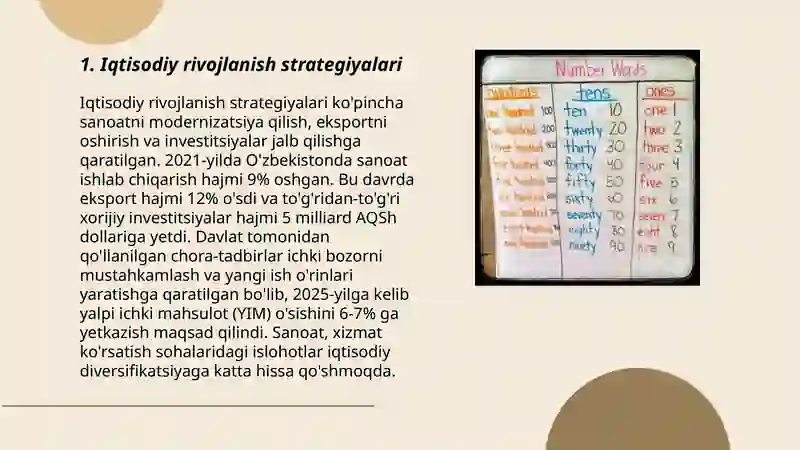 1. Iqtisodiy rivojlanish strategiyalari
Iqtisodiy rivojlanish strategiyalari ko'pincha
sanoatni modernizatsiya qilish, eksportni
oshirish va investitsiyalar jalb qilishga
qaratilgan. 2021-yilda O'zbekistonda sanoat
ishlab chiqarish hajmi 9% oshgan. Bu davrda
eksport hajmi 12% o'sdi va to'g'ridan-to'g'ri
xorijiy investitsiyalar hajmi 5 milliard AQSh
dollariga yetdi. Davlat tomonidan
qo'llanilgan chora-tadbirlar ichki bozorni
mustahkamlash va yangi ish o'rinlari
yaratishga qaratilgan bo'lib, 2025-yilga kelib
yalpi ichki mahsulot (YIM) o'sishini 6-7% ga
yetkazish maqsad qilindi. Sanoat, xizmat
ko'rsatish sohalaridagi islohotlar iqtisodiy
diversifikatsiyaga katta hissa qo'shmoqda.
Number Words
tens ones
one hundred 100 ten 10 one 1
hundred 200 twenty 20 two 2
three hundred thirty 30 three 3
four hundred 400 forty 40 four 4
five hundred fifty 50 five 5
sixty 60 six 6
seventy 70 seven 7
eighty 80 eight 8
ninety 90 nine 9